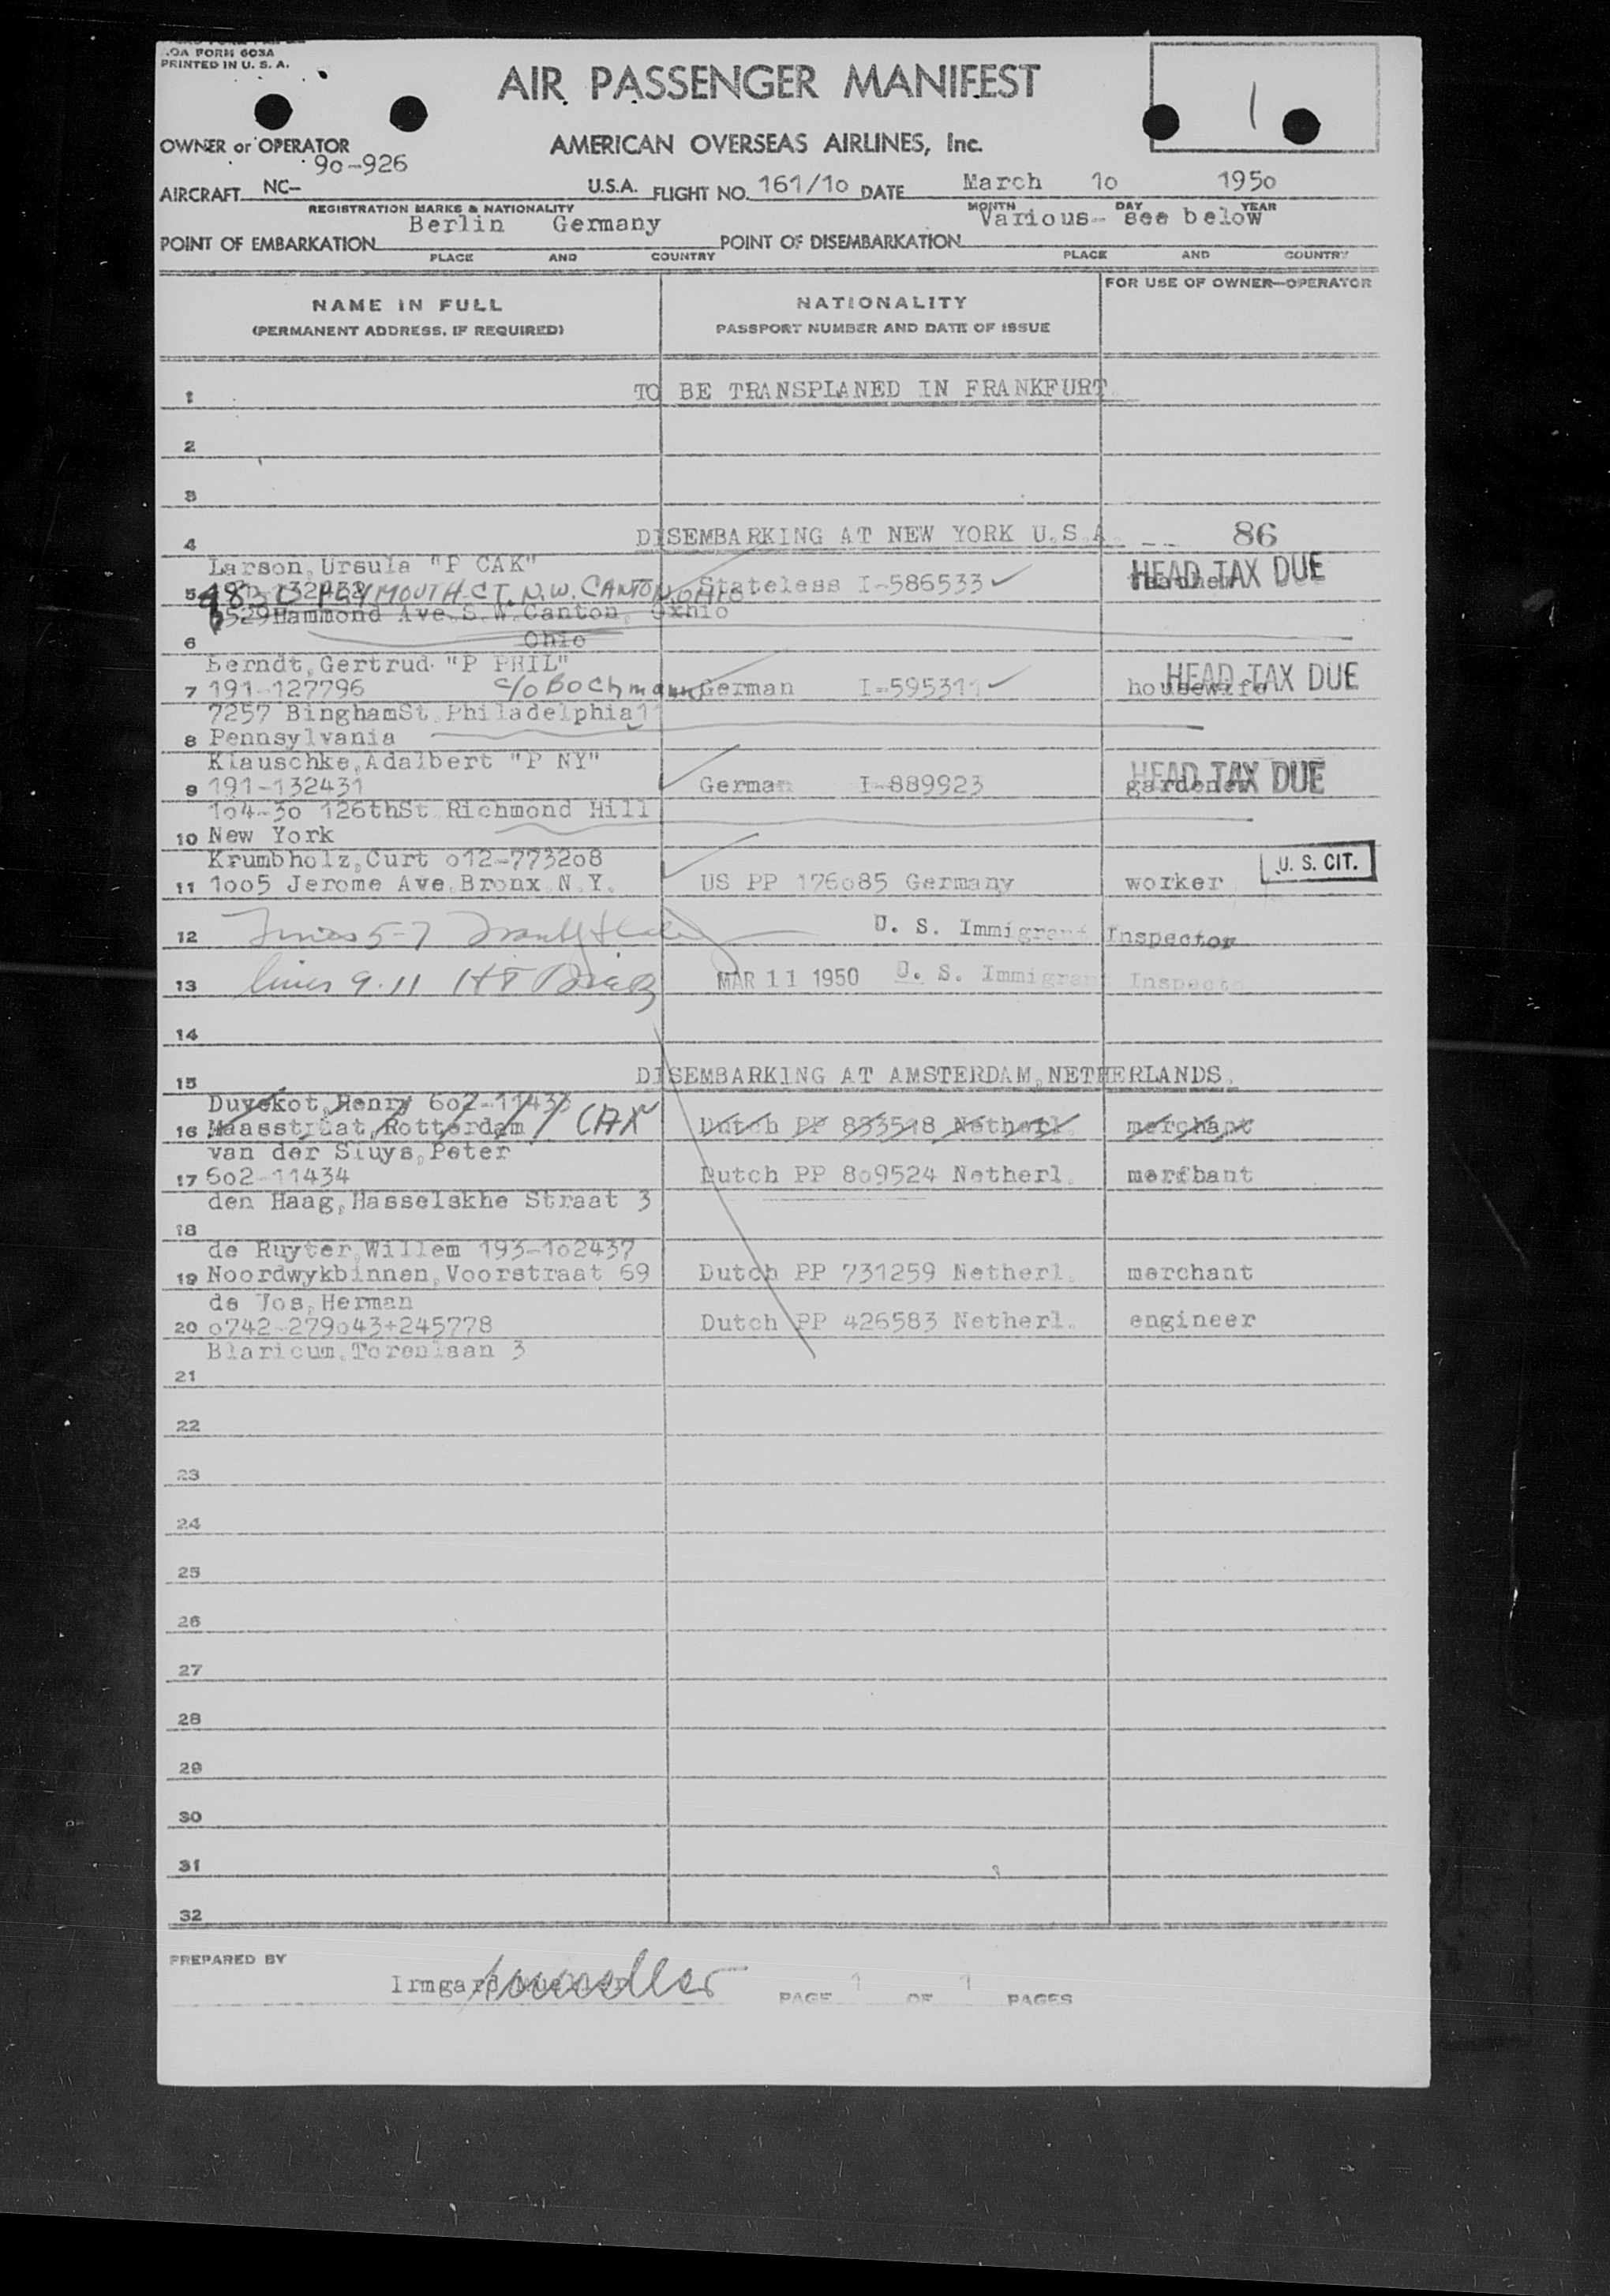 OA FORM 603A
PRINTED IN U. S. A.
AIR PASSENGER MANIFEST
1
OWNER or OPERATOR
AMERICAN OVERSEAS AIRLINES, Inc.
90-926
AIRCRAFT NC- U.S.A. FLIGHT NO. 161/1o DATE March 1o 195o
REGISTRATION MARKS & NATIONALITY MONTH DAY YEAR
Berlin Germany Various- see below
POINT OF EMBARKATION POINT OF DISEMBARKATION
PLACE AND COUNTRY PLACE AND COUNTRY
NAME IN FULL NATIONALITY FOR USE OF OWNER-OPERATOR
(PERMANENT ADDRESS, IF REQUIRED) PASSPORT NUMBER AND DATE OF ISSUE
1 TO BE TRANSPLANED IN FRANKFURT
2
3
4 DISEMBARKING AT NEW YORK U.S.A. 86
Larson,Ursula "P CAK" HEAD TAX DUE
5 PLYMOUTH CT. N.W. CANTON, OHIO Stateless I-586533
Hammond Ave.S.W.Canton,
6 Ohio
Berndt,Gertrud "P PHIL" HEAD TAX DUE
7 191-127796 c/o Bochmann German I-595311 housewife
7257 BinghamSt.Philadelphia11
8 Pennsylvania
Klauschke,Adalbert "P NY" HEAD TAX DUE
9 191-132431 German I-889923 gardener
1o4-3o 126thSt.Richmond Hill
10 New York
Krumbholz,Curt o12-7732o8 U. S. CIT.
11 1oo5 Jerome Ave.Bronx.N.Y. US PP 176o85 Germany worker
12 Lines 5-7 U. S. Immigrant Inspector
13 lines 9-11 MAR 11 1950 U. S. Immigrant Inspector
14
15 DISEMBARKING AT AMSTERDAM,NETHERLANDS.
Duvekot,Henry 6o2-11433
16 Maasstraat,Rotterdam Dutch PP 833518 Netherl. merchant
van der Sluys,Peter
17 6o2-11434 Dutch PP 8o9524 Netherl. merfbant
den Haag,Hasselskhe Straat 3
18
de Ruyter,Willem 193-1o2437
19 Noordwykbinnen,Voorstraat 69 Dutch PP 731259 Netherl. merchant
de Vos,Herman
20 o742-279o43+245778 Dutch PP 426583 Netherl. engineer
Blaricum,Torenlaan 3
21
22
23
24
25
26
27
28
29
30
31
32
PREPARED BY
Irmgard
PAGE 1 OF 1 PAGES